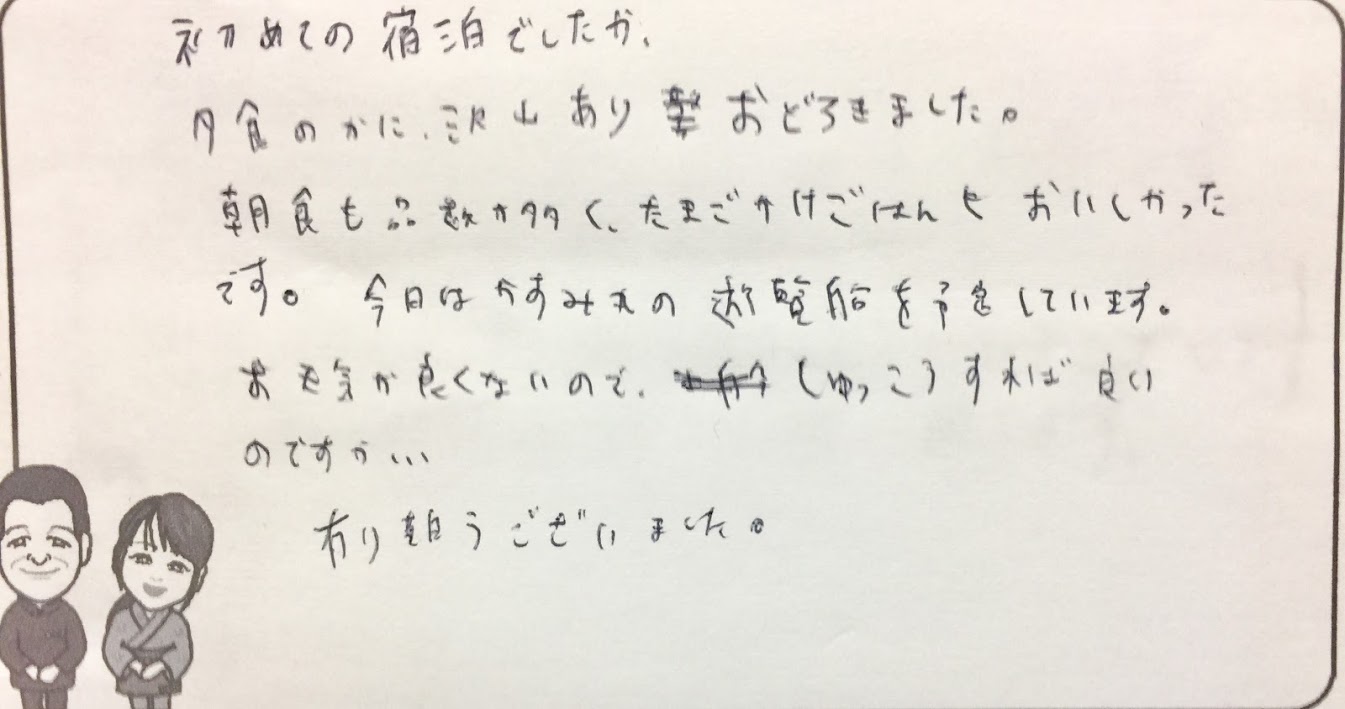 初めての宿泊でしたが、
夕食のかに、沢山ありおどろきました。
朝食も品数が多く、たまごかけごはんもおいしかった
です。今日はかすみ丸の遊覧船を予定しています。
お天気が良くないので、しゅっこうすれば良い
のですが...
有り難うございました。